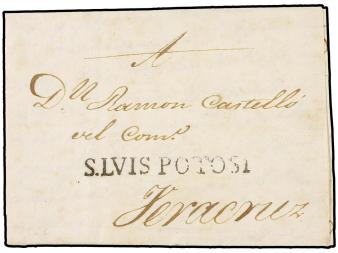 A
Dn Ramon Castelló
del Como
S.LVIS POTOSI
Veracruz